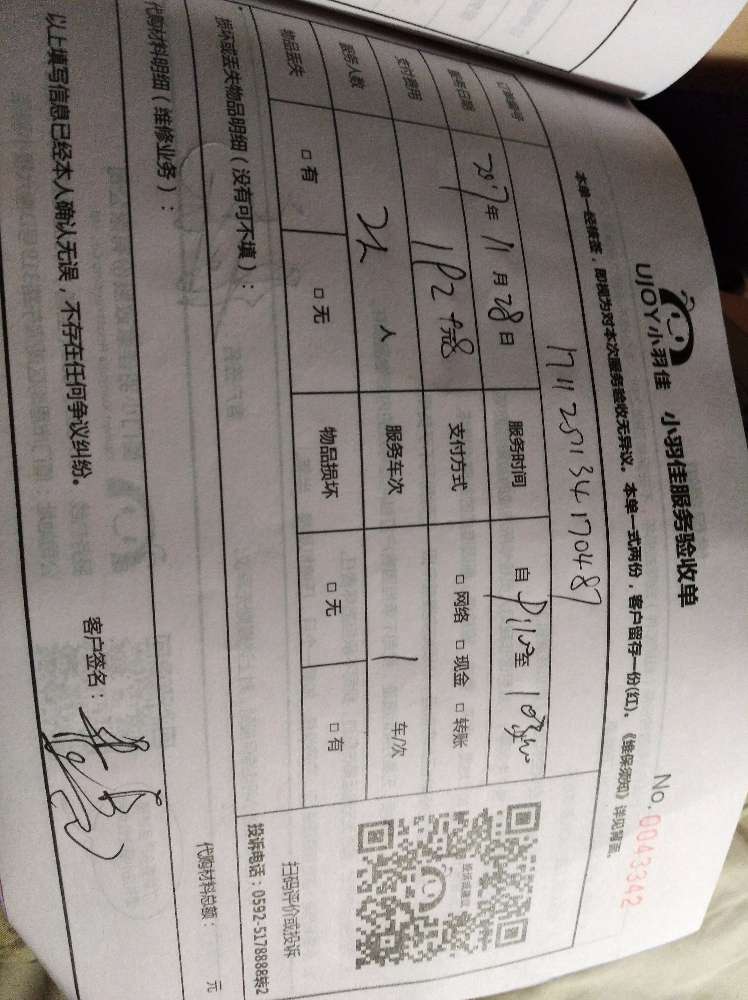 UJOY小羽佳 小羽佳服务验收单 No. 0043342
本单一经接签，即视为对本次服务验收无异议。本单一式两份，客户留存一份(红)。《维保须知》详见背面。
订单编号
服务日期 2017年11月28日 服务时间 自 至
支付费用 支付方式 □网络 □现金 □转账
服务人数 人 服务车次 1 车/次
物品丢失 □有 □无 物品损坏 □无 □有
扫码评价或投诉
投诉电话：0592-5178888转2
损坏或丢失物品明细（没有可不填）：
代购材料明细（维修业务）： 代购材料总额： 元
以上填写信息已经本人确认无误，不存在任何争议纠纷。
客户签名：